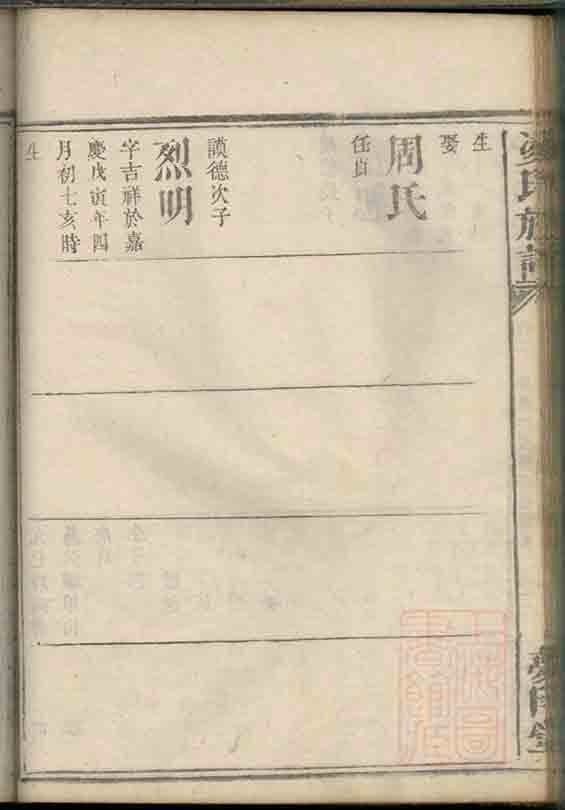 生
娶
周氏
任貞
謨德次子
烈明
字吉祥於嘉
慶戊寅年四
月初七亥時
生
氏族譜